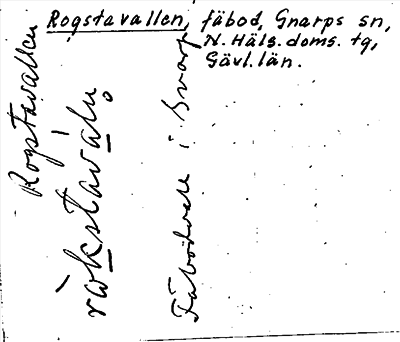 Rogstavallen, fäbod, Gnarps sn,
N. Häls. doms. tg,
Gävl. län.
Rogstavallen
Fäbodvall i Gnarp